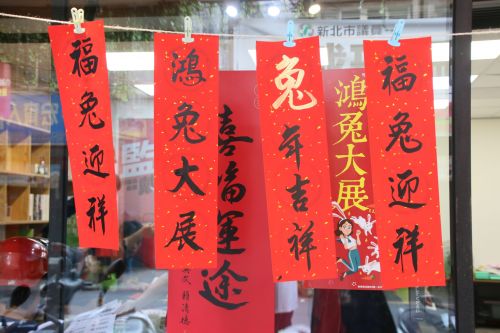 新北市議員
福兔迎祥
鴻兔大展
兔年吉祥
鴻兔大展
福兔迎祥
喜福運途
監